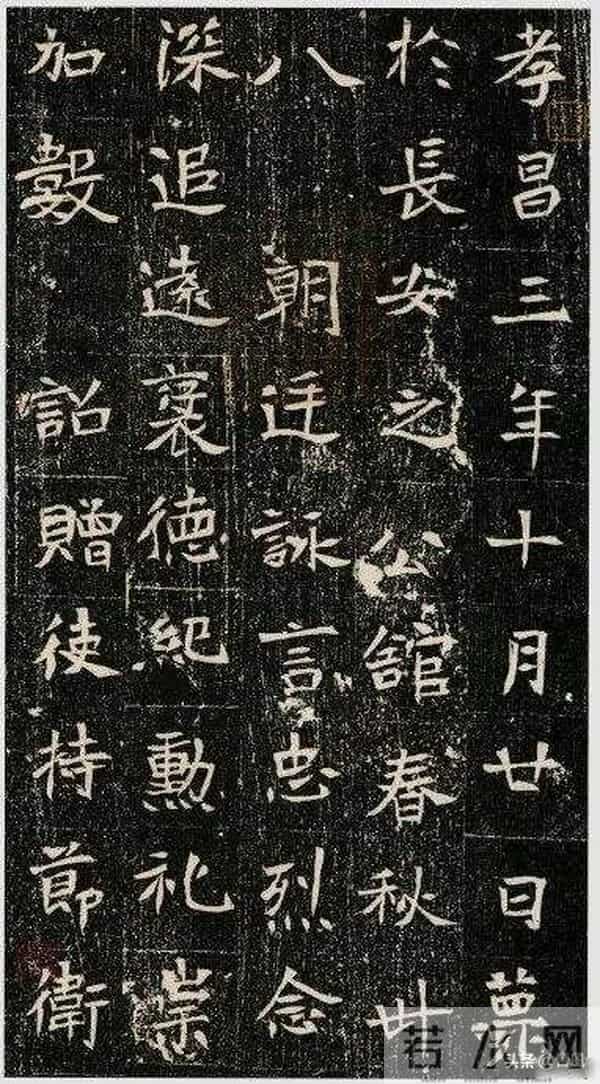 孝昌三年十月廿日薨
於長安之公館春秋卌
八 朝廷詠言忠烈念
深追遠褒德紀勳礼崇
加數 詔贈使持節衛
头条